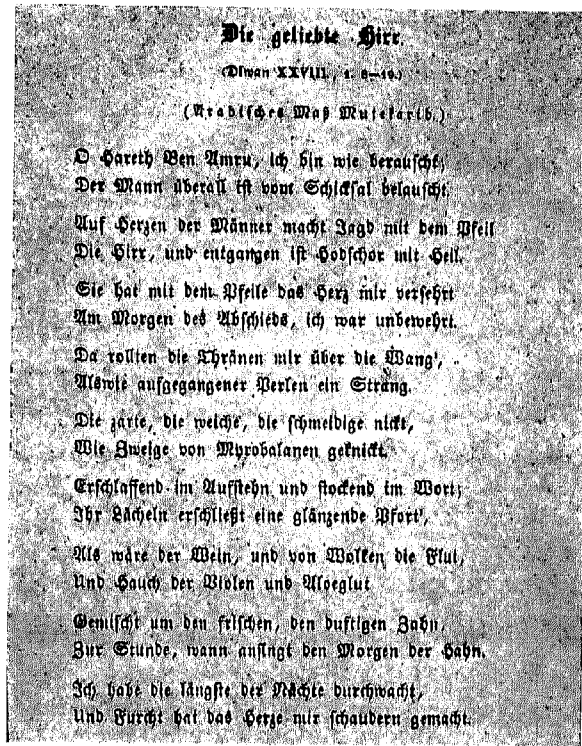 Die geliebte Hirr.
(Diwan XXVIII, 1. 8—19.)
(Arabisches Maß Mutekarib.)
O Hareth Ben Amru, ich bin wie berauscht;
Der Mann überall ist vom Schicksal belauscht.
Auf Herzen der Männer macht Jagd mit dem Pfeil
Die Hirr, und entgangen ist Hodschor mit Heil.
Sie hat mit dem Pfeile das Herz mir versehrt
Am Morgen des Abschieds, ich war unbewehrt.
Da rollten die Thränen mir über die Wang',
Alswie aufgegangener Perlen ein Strang.
Die zarte, die weiche, die schmeidige nickt,
Wie Zweige von Myrobalanen geknickt.
Erschlaffend im Aufstehn und stockend im Wort;
Ihr Lächeln erschließt eine glänzende Pfort',
Als wäre der Wein, und von Wolken die Flut,
Und Hauch der Violen und Aloeglut
Gemischt um den frischen, den duftigen Zahn,
Zur Stunde, wann ansingt den Morgen der Hahn.
Ich habe die längste der Nächte durchwacht,
Und Furcht hat das Herze mir schaudern gemacht.